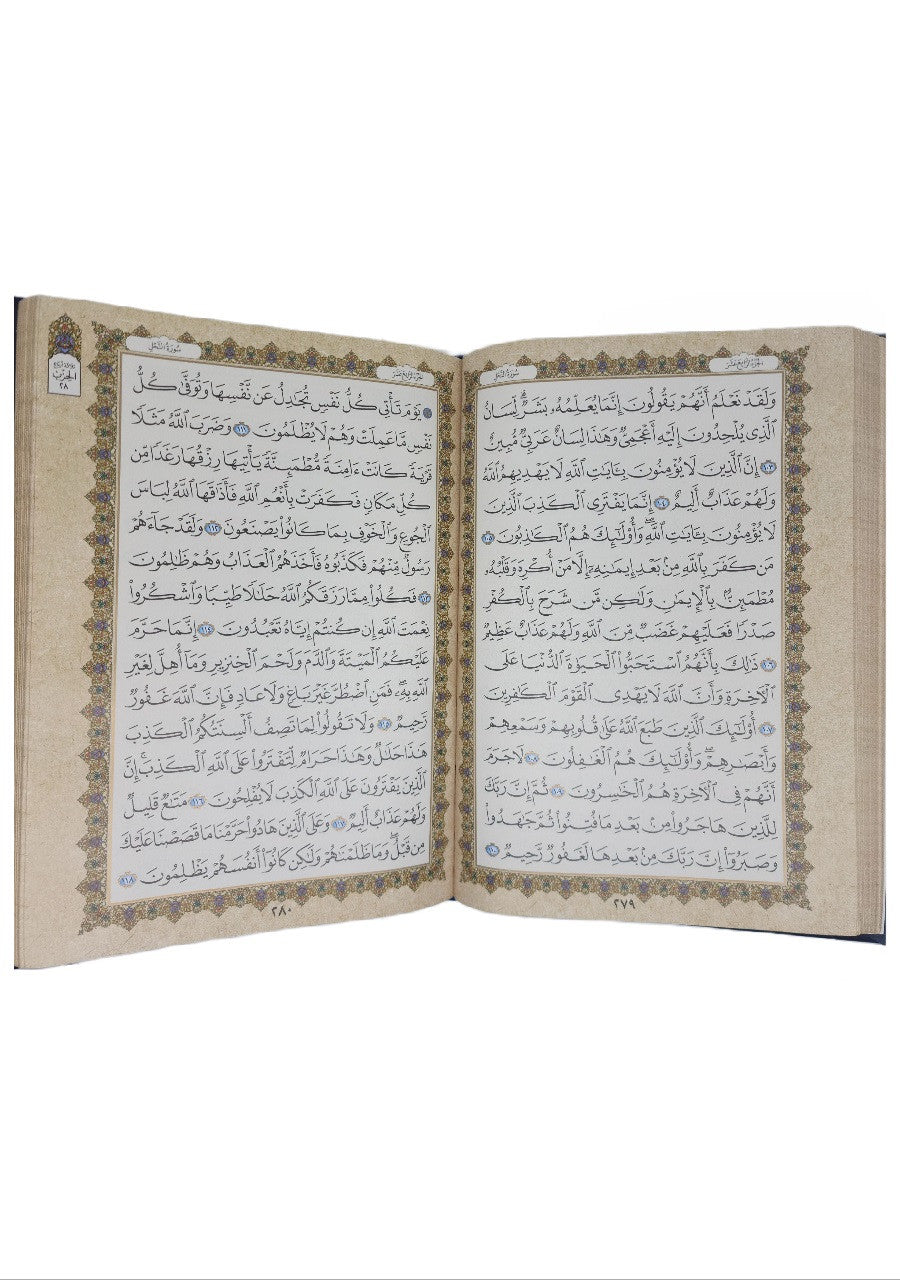 الجزء الرابع عشر
سورة النحل
وَلَقَدْ نَعْلَمُ أَنَّهُمْ يَقُولُونَ إِنَّمَا يُعَلِّمُهُۥ بَشَرٌۗ لِّسَانُ
ٱلَّذِى يُلْحِدُونَ إِلَيْهِ أَعْجَمِىٌّ وَهَٰذَا لِسَانٌ عَرَبِىٌّ مُّبِينٌ
١٠٣ إِنَّ ٱلَّذِينَ لَا يُؤْمِنُونَ بِـَٔايَٰتِ ٱللَّهِ لَا يَهْدِيهِمُ ٱللَّهُ
وَلَهُمْ عَذَابٌ أَلِيمٌ ١٠٤ إِنَّمَا يَفْتَرِى ٱلْكَذِبَ ٱلَّذِينَ
لَا يُؤْمِنُونَ بِـَٔايَٰتِ ٱللَّهِۖ وَأُو۟لَٰٓئِكَ هُمُ ٱلْكَٰذِبُونَ ١٠٥
مَن كَفَرَ بِٱللَّهِ مِنۢ بَعْدِ إِيمَٰنِهِۦٓ إِلَّا مَنْ أُكْرِهَ وَقَلْبُهُۥ
مُطْمَئِنٌّۢ بِٱلْإِيمَٰنِ وَلَٰكِن مَّن شَرَحَ بِٱلْكُفْرِ
صَدْرًا فَعَلَيْهِمْ غَضَبٌ مِّنَ ٱللَّهِ وَلَهُمْ عَذَابٌ عَظِيمٌ
١٠٦ ذَٰلِكَ بِأَنَّهُمُ ٱسْتَحَبُّوا۟ ٱلْحَيَوٰةَ ٱلدُّنْيَا عَلَى
ٱلْءَاخِرَةِ وَأَنَّ ٱللَّهَ لَا يَهْدِى ٱلْقَوْمَ ٱلْكَٰفِرِينَ
١٠٧ أُو۟لَٰٓئِكَ ٱلَّذِينَ طَبَعَ ٱللَّهُ عَلَىٰ قُلُوبِهِمْ وَسَمْعِهِمْ
وَأَبْصَٰرِهِمْۖ وَأُو۟لَٰٓئِكَ هُمُ ٱلْغَٰفِلُونَ ١٠٨ لَا جَرَمَ
أَنَّهُمْ فِى ٱلْءَاخِرَةِ هُمُ ٱلْخَٰسِرُونَ ١٠٩ ثُمَّ إِنَّ رَبَّكَ
لِلَّذِينَ هَاجَرُوا۟ مِنۢ بَعْدِ مَا فُتِنُوا۟ ثُمَّ جَٰهَدُوا۟
وَصَبَرُوٓا۟ إِنَّ رَبَّكَ مِنۢ بَعْدِهَا لَغَفُورٌ رَّحِيمٌ ١١٠
٢٧٩
الجزء الرابع عشر
سورة النحل
الحزب
٢٨
يَوْمَ تَأْتِى كُلُّ نَفْسٍ تُجَٰدِلُ عَن نَّفْسِهَا وَتُوَفَّىٰ كُلُّ
نَفْسٍ مَّا عَمِلَتْ وَهُمْ لَا يُظْلَمُونَ ١١١ وَضَرَبَ ٱللَّهُ مَثَلًا
قَرْيَةً كَانَتْ ءَامِنَةً مُّطْمَئِنَّةً يَأْتِيهَا رِزْقُهَا رَغَدًا مِّن
كُلِّ مَكَانٍ فَكَفَرَتْ بِأَنْعُمِ ٱللَّهِ فَأَذَٰقَهَا ٱللَّهُ لِبَاسَ
ٱلْجُوعِ وَٱلْخَوْفِ بِمَا كَانُوا۟ يَصْنَعُونَ ١١٢ وَلَقَدْ جَآءَهُمْ
رَسُولٌ مِّنْهُمْ فَكَذَّبُوهُ فَأَخَذَهُمُ ٱلْعَذَابُ وَهُمْ ظَٰلِمُونَ
١١٣ فَكُلُوا۟ مِمَّا رَزَقَكُمُ ٱللَّهُ حَلَٰلًا طَيِّبًا وَٱشْكُرُوا۟
نِعْمَتَ ٱللَّهِ إِن كُنتُمْ إِيَّاهُ تَعْبُدُونَ ١١٤ إِنَّمَا حَرَّمَ
عَلَيْكُمُ ٱلْمَيْتَةَ وَٱلدَّمَ وَلَحْمَ ٱلْخِنزِيرِ وَمَآ أُهِلَّ لِغَيْرِ
ٱللَّهِ بِهِۦۖ فَمَنِ ٱضْطُرَّ غَيْرَ بَاغٍ وَلَا عَادٍ فَإِنَّ ٱللَّهَ غَفُورٌ
رَّحِيمٌ ١١٥ وَلَا تَقُولُوا۟ لِمَا تَصِفُ أَلْسِنَتُكُمُ ٱلْكَذِبَ
هَٰذَا حَلَٰلٌ وَهَٰذَا حَرَامٌ لِّتَفْتَرُوا۟ عَلَى ٱللَّهِ ٱلْكَذِبَۚ إِنَّ
ٱلَّذِينَ يَفْتَرُونَ عَلَى ٱللَّهِ ٱلْكَذِبَ لَا يُفْلِحُونَ ١١٦ مَتَٰعٌ قَلِيلٌ
وَلَهُمْ عَذَابٌ أَلِيمٌ ١١٧ وَعَلَى ٱلَّذِينَ هَادُوا۟ حَرَّمْنَا مَا قَصَصْنَا عَلَيْكَ
مِن قَبْلُۖ وَمَا ظَلَمْنَٰهُمْ وَلَٰكِن كَانُوٓا۟ أَنفُسَهُمْ يَظْلِمُونَ ١١٨
٢٨٠